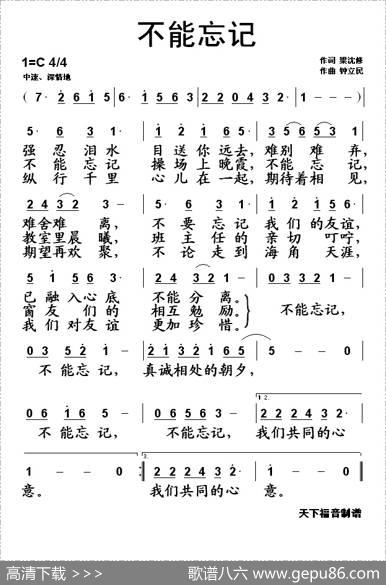 不能忘记
1=C 4/4
作词 梁沈修
中速、深情地
作曲 钟立民
( 7· 2 6 1 5 | 6· 1 3 5 6 3 | 2 2 0 4 3 2· )
5· 6 3 1 | 5· 6 3 1· | 3 5 6 5 3 1
强忍泪水 目送你远去, 难别难弃,
不能忘记 操场上晚霞, 不能忘记,
纵行千里 心儿在一起, 期待着相见,
2 4 3 2 3 - | 5· 6 3 1 | 0 3 2 1 5 1·
难舍难离, 不要忘记 我们的友谊,
教室里晨曦, 班主任的亲切叮咛,
期望再欢聚, 不论走到海角天涯,
已融入心底 不能分离。
窗友们的 相互勉励。 不能忘记,
我们对友谊 更加珍惜。
0 3 5 2 1 - | 2 1 3 2 1 6 5 | 5 - - 0
不能忘记, 真诚相处的朝夕,
1 2.
0 6 1 6 5 - | 0 6 5 6 3· | 2 2 2 4 3 2·
不能忘记, 不能忘记, 我们共同的心
3.
1 - - 0 :| 2 2 2 4 3 2· | 1 - - 0
意。 我们共同的心 意。
天下福音制谱
高清下载 >>> 歌谱八六 www.gepu86.com